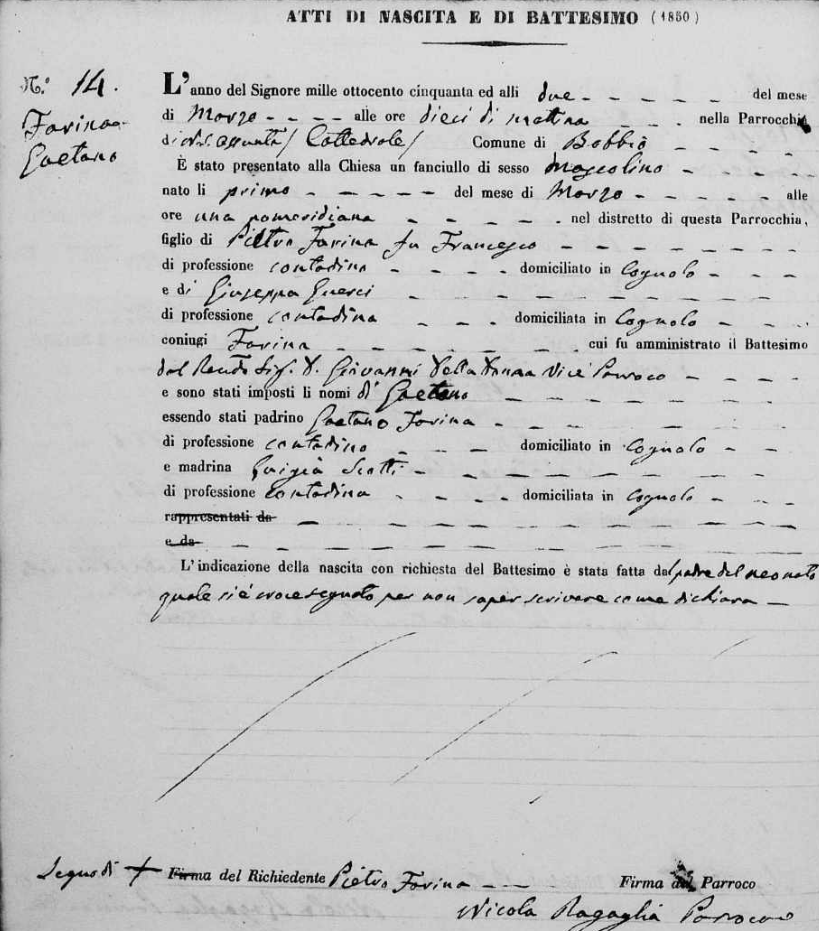 ATTI DI NASCITA E DI BATTESIMO (1850)
N.° 14.
Farina
Gaetano
L'anno del Signore mille ottocento cinquanta ed alli due - - - - - del mese
di Marzo - - - - alle ore dieci di mattina - - - - nella Parrocchia
di N.S. Assunta / Cattedrale / Comune di Bobbio - - - -
È stato presentato alla Chiesa un fanciullo di sesso Mascolino - - - -
nato li primo - - - - - - del mese di Marzo - - - - - alle
ore una pomeridiana - - - - - nel distretto di questa Parrocchia,
figlio di Pietro Farina fu Francesco - - - - - - -
di professione contadino - - - - domiciliato in Cognolo - - -
e di Giuseppa Guerci - - - - - - - -
di professione contadina - - - domiciliata in Cognolo - - -
coniugi Farina - - - - - - - - cui fu amministrato il Battesimo
dal Revdo Sig. D. Giovanni Della Vice Parroco - - - -
e sono stati imposti li nomi di Gaetano - - - - - - -
essendo stati padrino Gaetano Farina - - - - - - -
di professione contadino - - - - domiciliato in Cognolo - - -
e madrina Scotti - - - - - - - -
di professione contadina - - - - domiciliata in Cognolo - - -
rappresentati da - - - - - - - - - -
e da - - - - - - - - - - - -
L'indicazione della nascita con richiesta del Battesimo è stata fatta dal padre del neonato
quale si è crocesegnato per non saper scrivere come dichiara -
Segno di + Firma del Richiedente Pietro Farina - - - Firma del Parroco
Nicola Ragaglia Parroco